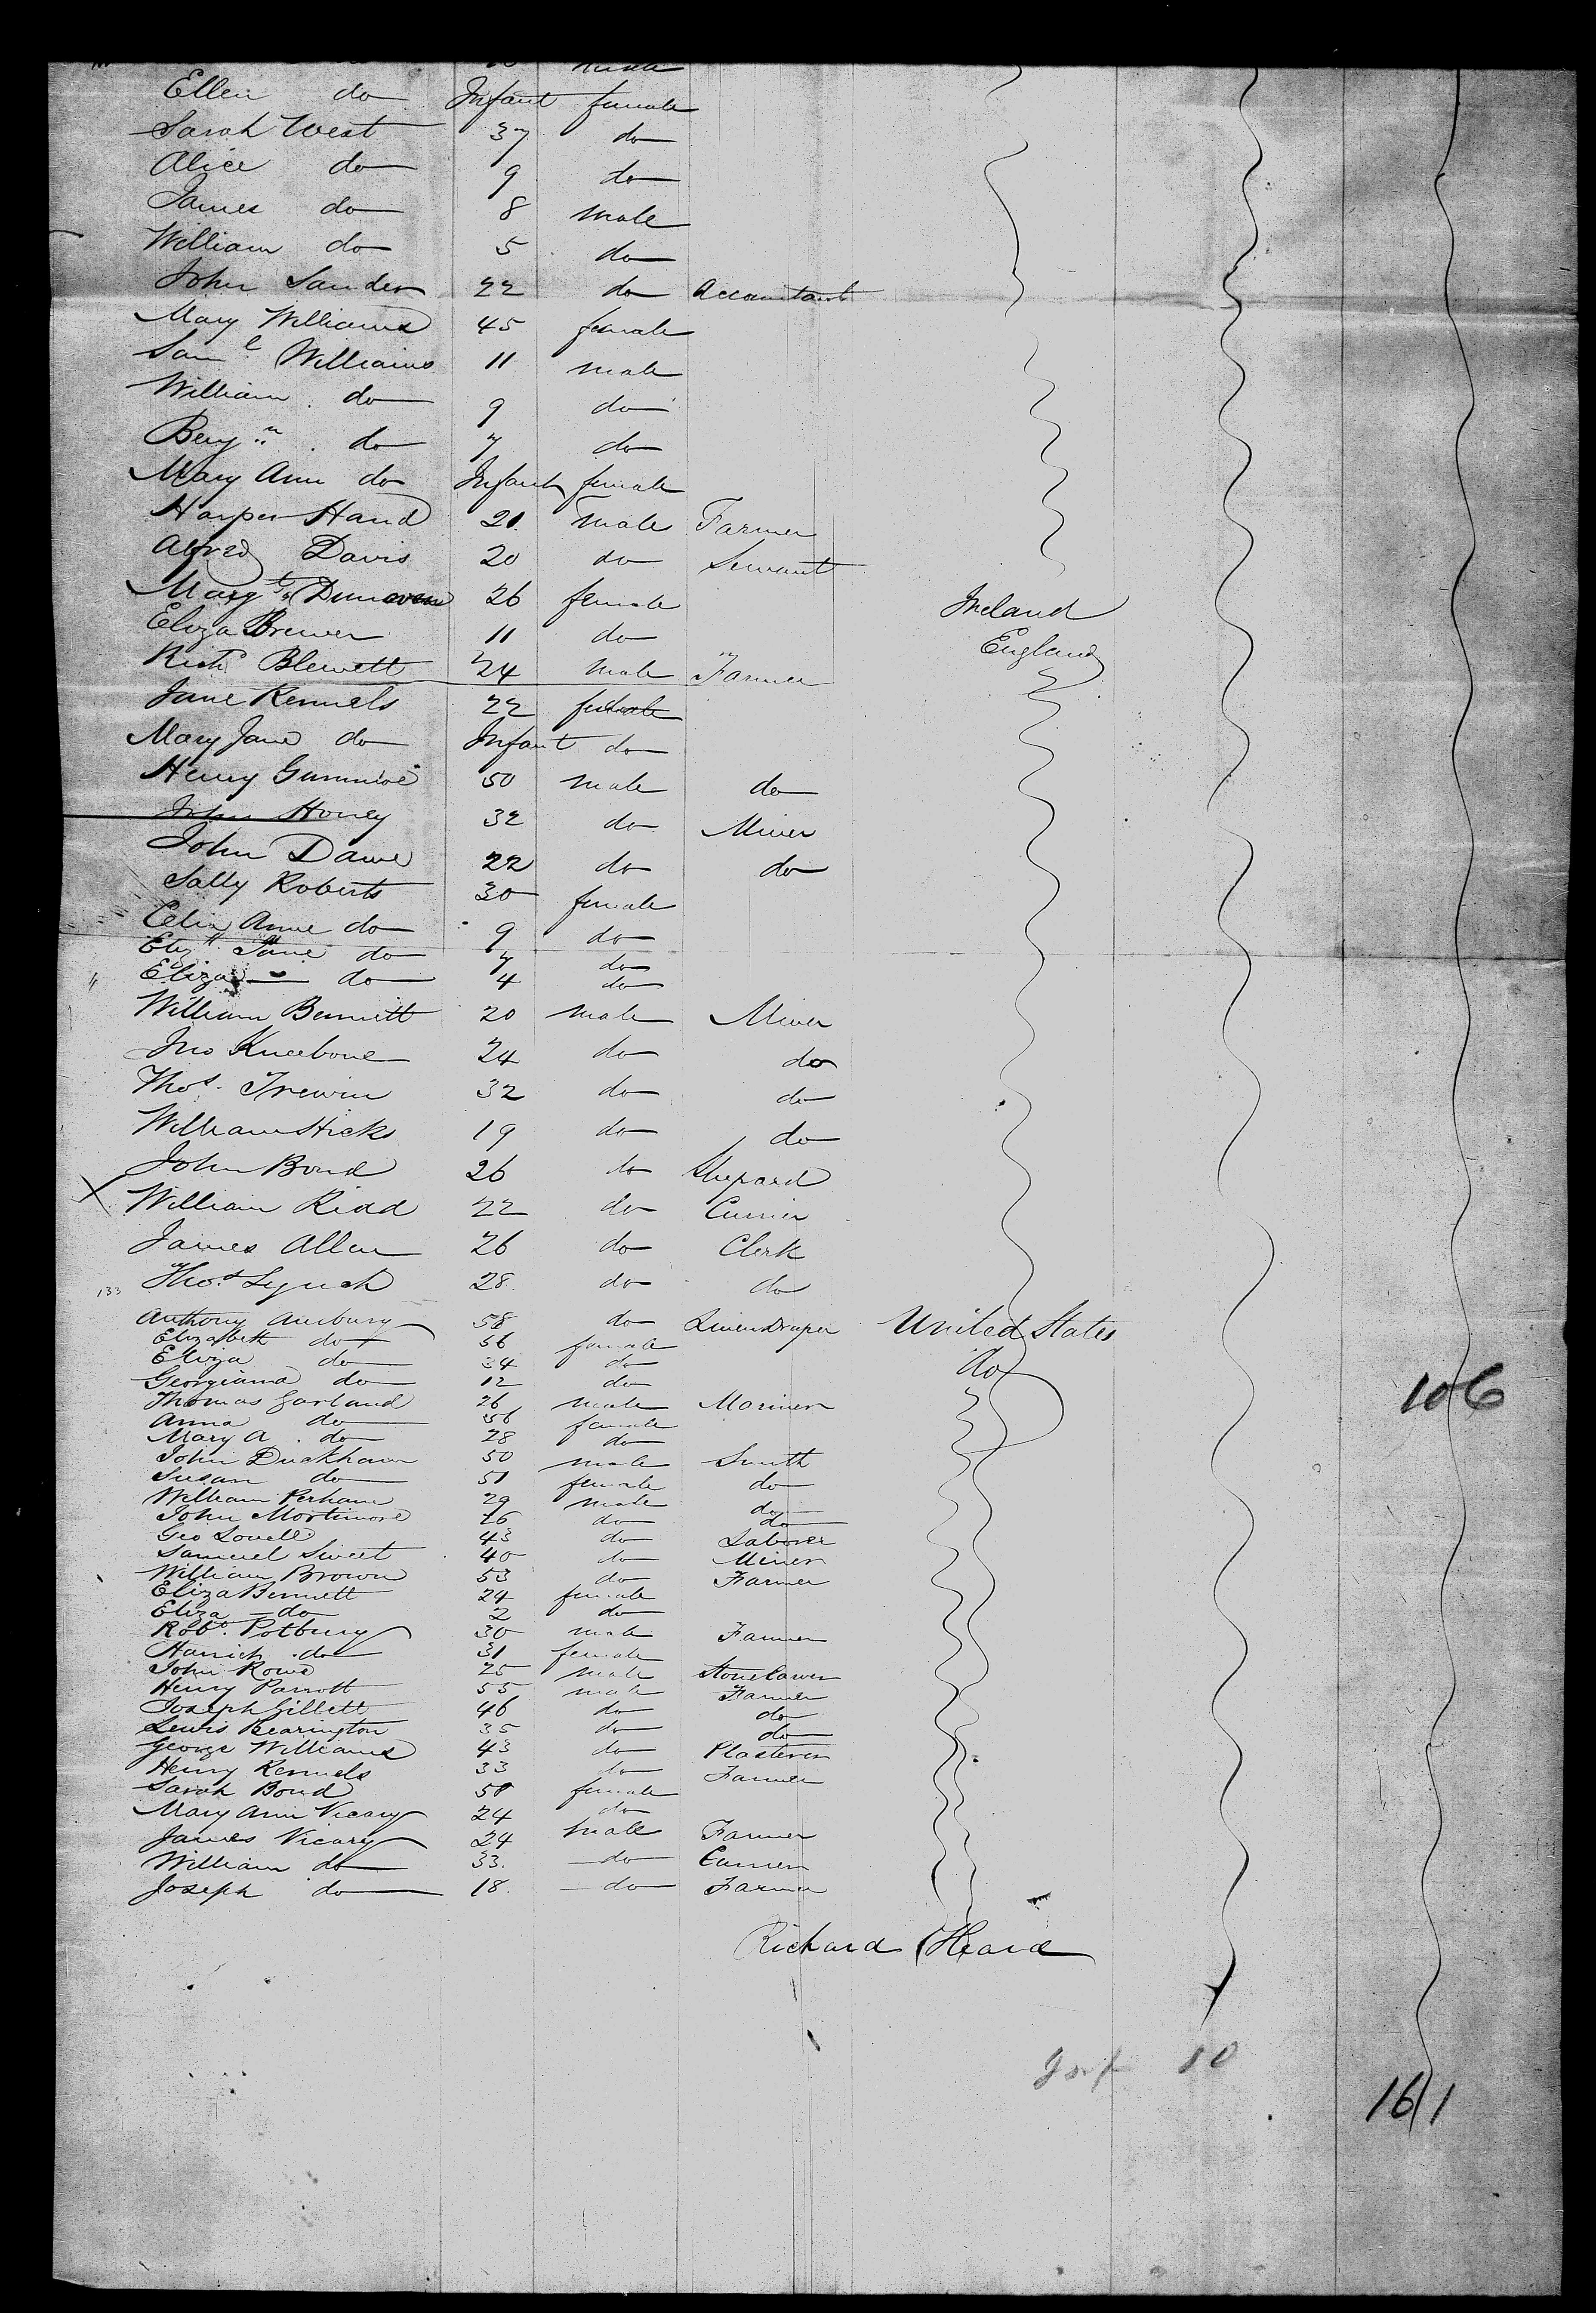 Ellen do Infant female
Sarah West 37 do
Alice do 9 do
James do 8 male
William do 5 do
John Sander 22 do Accountant
Mary Williams 45 female
Saml Williams 11 male
William do 9 do
Benjn do 7 do
Mary Ann do Infant female
Harper Hand 21 male Farmer
Alfred Davis 20 do Servant
Margt Dunaven 26 female Ireland
Eliza Brewer 11 do England
Richd Blewett 24 male Farmer
Jane Kennels 22 female
Mary Jane do Infant do
Henry 50 male do
John Honey 32 do Miner
John Dawe 22 do do
Sally Roberts 30 female
Celia Anne do 9 do
Elizth Jane do 7 do
Eliza do 4 do
William Bennett 20 male Miner
Jno Kneebone 24 do do
Thos. Trewin 32 do do
William Hicks 19 do do
John Bond 26 do Shepard
William Ridd 22 do Currier
James Allen 26 do Clerk
133 Thos Lynch 28 do do
Anthony 58 do Linendraper United States
Elizabeth do 56 female do
Eliza do 24 do
Georgiana do 12 do
Thomas Garland 26 male Mariner 106
Anna do 56 female
Mary A. do 28 do
John Duckham 50 male Smith
Susan do 51 female do
William Perham 29 male do
John Mortimore 26 do do
Geo Lovell 43 do Laborer
Samuel Sweet 40 do Miner
William Brown 53 do Farmer
Eliza Bennett 24 female
Eliza do 2 do
Robt. Potbury 30 male Farmer
do 31 female
John Rowe 25 male
Henry Parrott 55 male Farmer
Joseph Gillett 46 do do
Lewis Bearington 35 do do
George Williams 43 do Plasterer
Henry Kennels 33 do Farmer
Sarah Bond 50 female
Mary Ann Vicary 24 do
James Vicary 24 male Farmer
William do 33. do Currier
Joseph do 18. do Farmer
Richard Heard
10
161